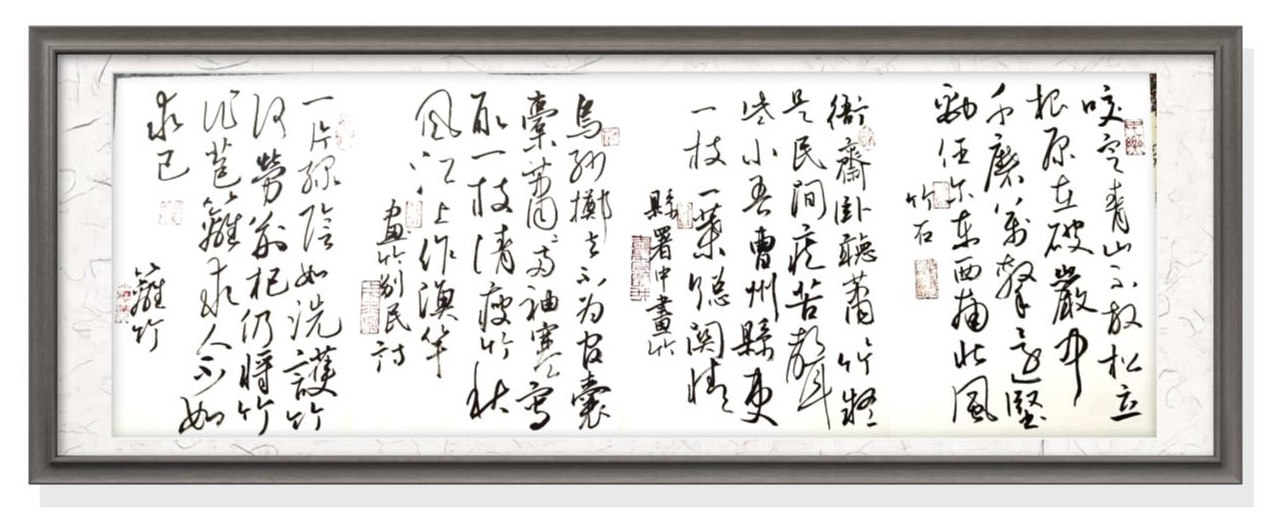 咬定青山不放松立
根原在破巖中
千磨萬擊還堅
勁任尔东西南北風
竹石
衙齋卧聽蕭竹疑
是民間疾苦聲
些小吾曹州縣吏
一枝一葉總関情
縣署中畫竹
烏紗擲去不为官囊
橐蕭〻兩袖寒寫
取一枝清瘦竹秋
風江上作漁竿
畫竹别民詩
一片綠陰如洗護竹
何勞荊杞仍將竹
作笆籬求人不如
求己
籬竹